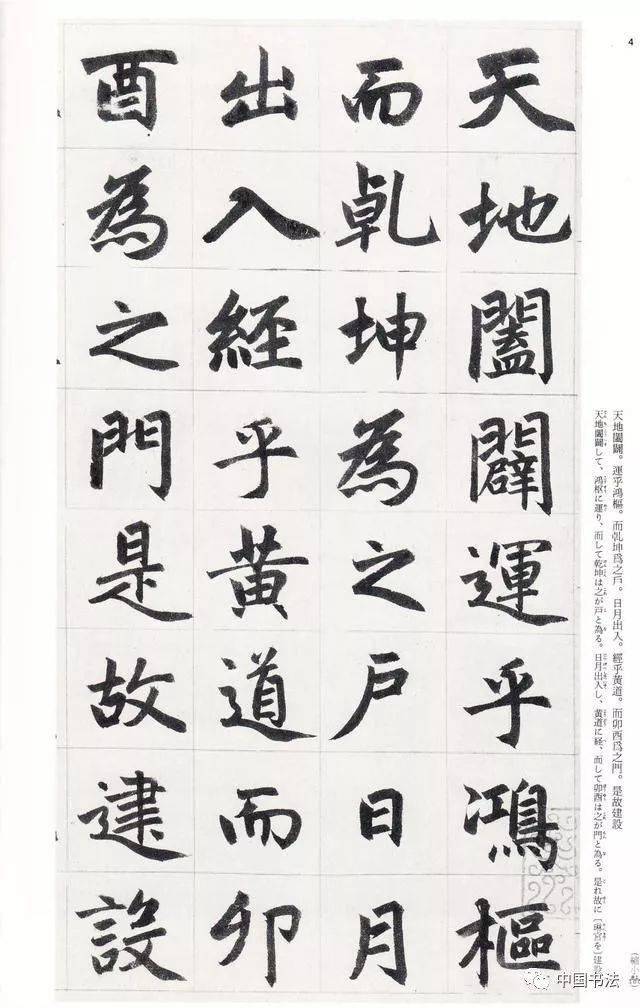 4
天地闔闢。運乎鴻樞。而乹坤爲之戶。日月出入。經乎黃道。而卯酉爲之門。是故建設
天地闔闢して、鴻枢に運り、而して乾坤は之が戸と為る。日月出入し、黄道に経、而して卯酉は之が門と為る。是れ故に〔琳宮を〕建設
天地闔闢運乎鴻樞
而乹坤為之戶日月
出入經乎黄道而卯
酉為之門是故建設
中国书法